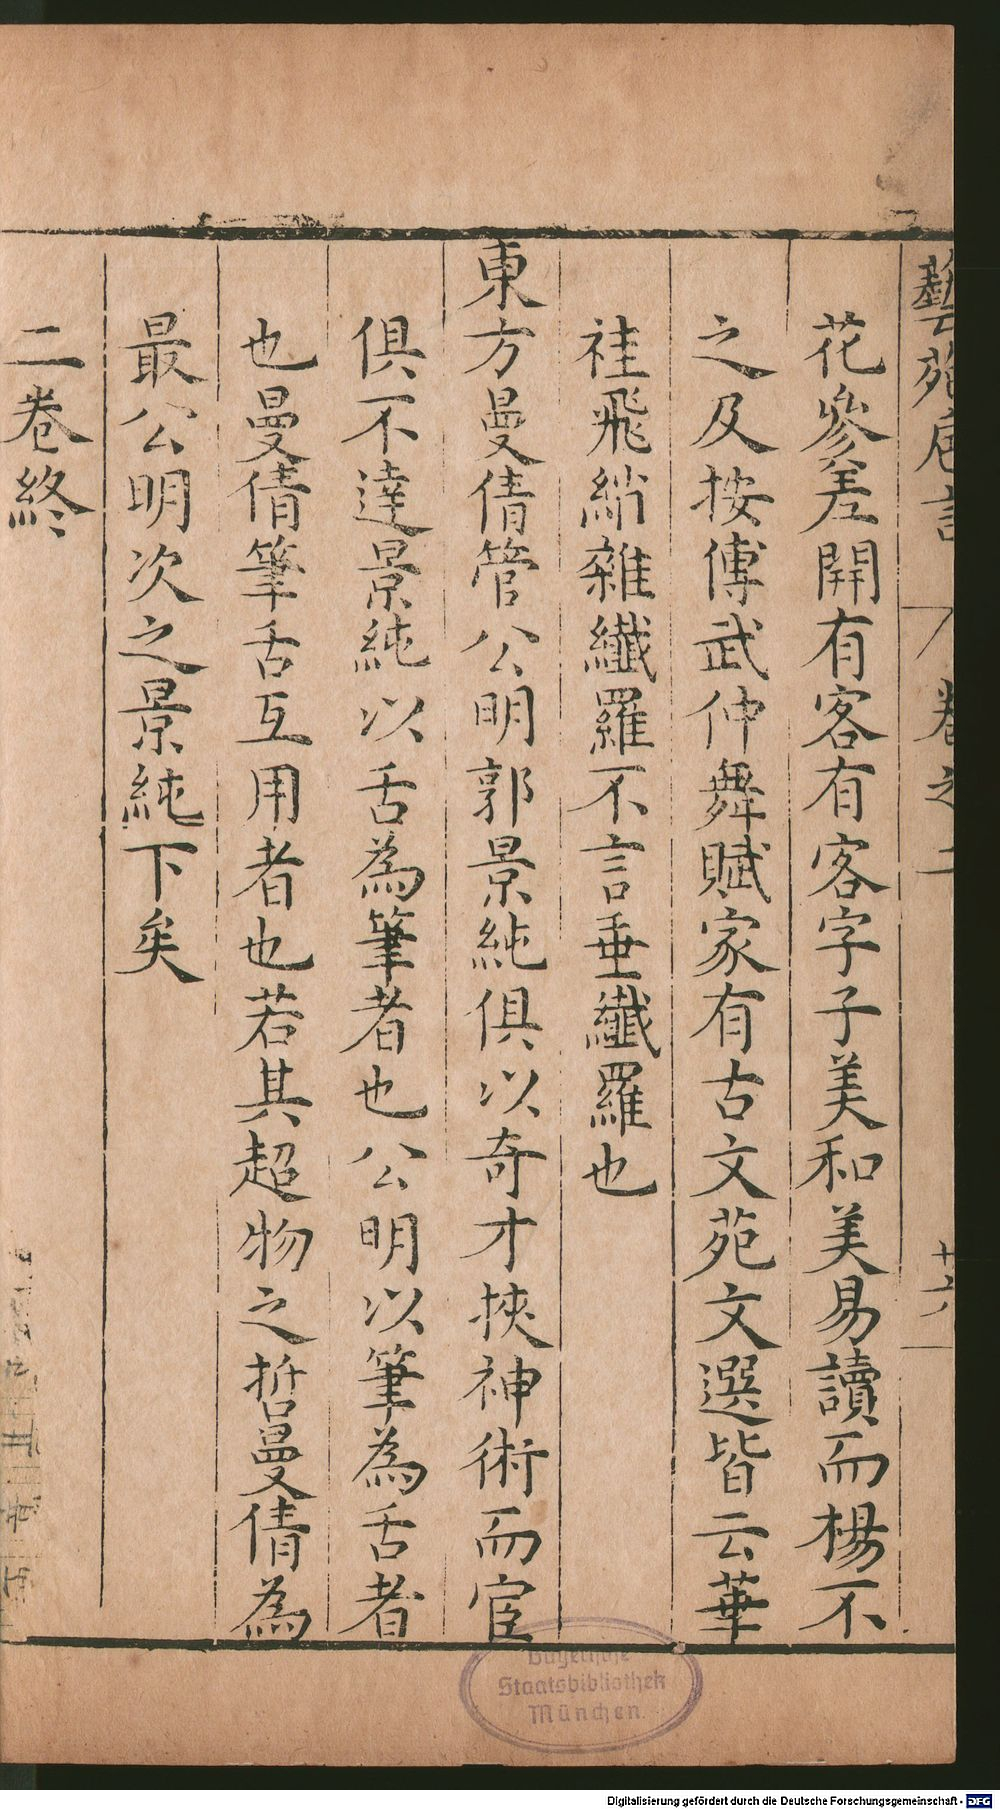 藝苑巵言 卷之二 廿六
花參差開有客有客字子美和美易讀而楊不
之及按傅武仲舞賦家有古文苑文選皆云華
袿飛綃雜纖羅不言垂纖羅也
東方曼倩管公明郭景純俱以奇才挾神術而宦
俱不達景純以舌為筆者也公明以筆為舌者
也曼倩筆舌互用者也若其超物之哲曼倩為
最公明次之景純下矣
二卷終
Bayerische
Staatsbibliothek
München
Digitalisierung gefördert durch die Deutsche Forschungsgemeinschaft - DFG